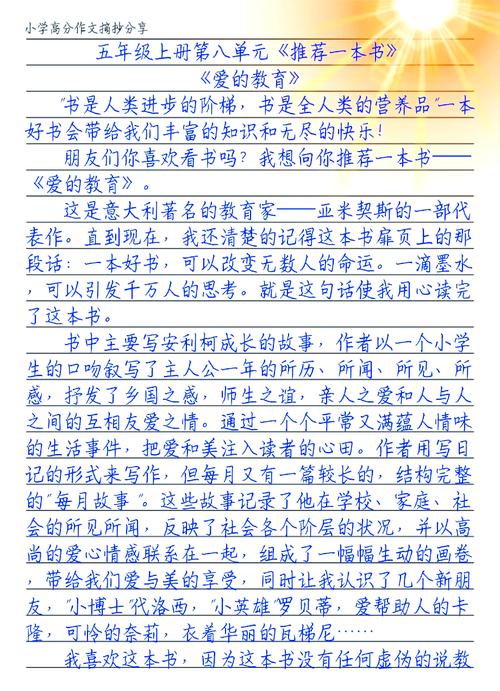 小学高分作文摘抄分享
五年级上册第八单元《推荐一本书》
《爱的教育》
"书是人类进步的阶梯，书是全人类的营养品"一本
好书会带给我们丰富的知识和无尽的快乐！
朋友们你喜欢看书吗？我想向你推荐一本书——
《爱的教育》。
这是意大利著名的教育家——亚米契斯的一部代
表作。直到现在，我还清楚的记得这本书扉页上的那
段话：一本好书，可以改变无数人的命运。一滴墨水
，可以引发千万人的思考。就是这句话使我用心读完
了这本书。
书中主要写安利柯成长的故事，作者以一个小学
生的口吻叙写了主人公一年的所历、所闻、所见、所
感，抒发了乡国之感，师生之谊，亲人之爱和人与人
之间的互相友爱之情。通过一个个平常又满蕴人情味
的生活事件，把爱和美注入读者的心田。作者用写日
记的形式来写作，但每月又有一篇较长的，结构完整
的"每月故事"。这些故事记录了他在学校、家庭、社
会的所见所闻，反映了社会各个阶层的状况，并以高
尚的爱心情感联系在一起，组成了一幅幅生动的画卷
，带给我们爱与美的享受，同时让我认识了几个新朋
友，"小博士"代洛西，"小英雄"罗贝蒂，爱帮助人的卡
隆，可怜的奈莉，衣着华丽的瓦梯尼……
我喜欢这本书，因为这本书没有任何虚伪的说教